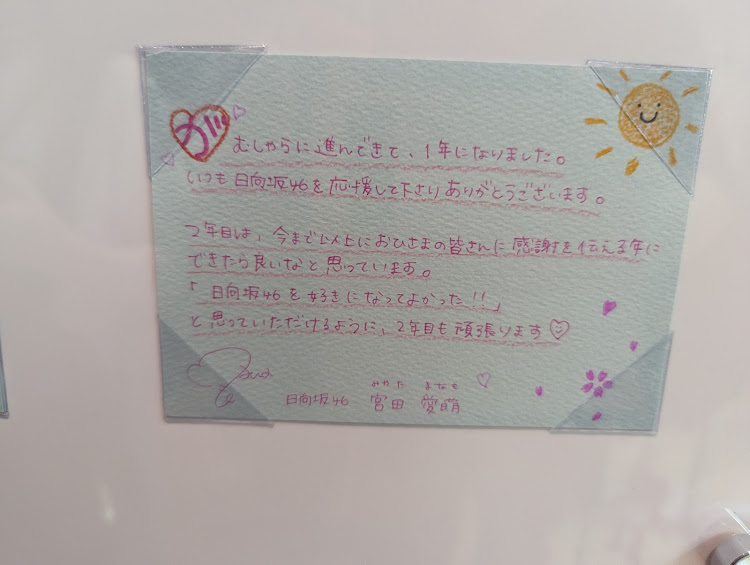 がむしゃらに進んできて、1年になりました。
いつも日向坂46を応援して下さりありがとうございます。
2年目は、今まで以上におひさまの皆さんに感謝を伝える年に
できたら良いなと思っています。
「日向坂46を好きになってよかった!!」
と思っていただけるように、2年目も頑張ります
みやた まなも
日向坂46 宮田 愛萌